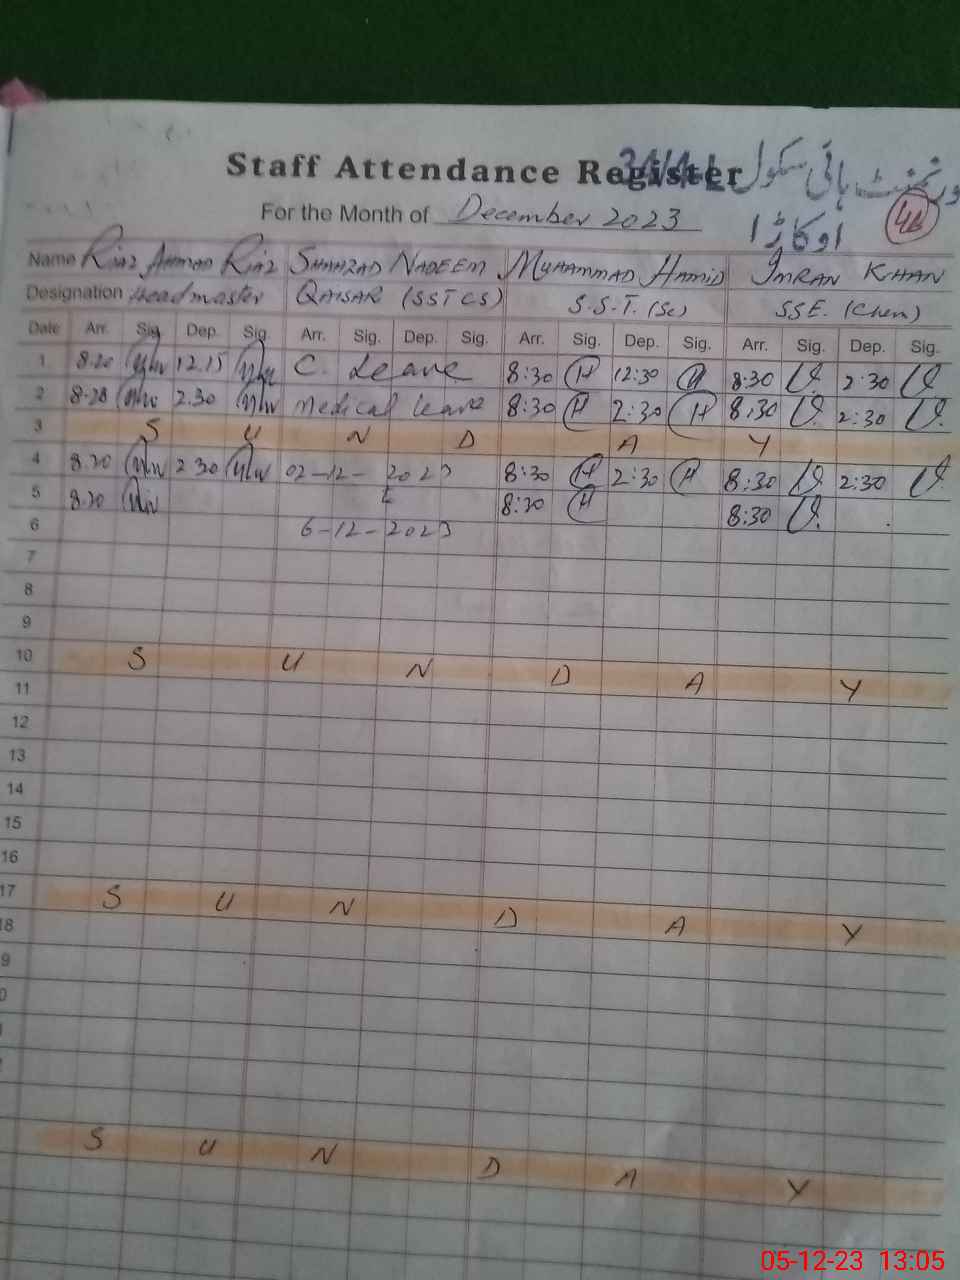 Staff Attendance Register 34/4-L گورنمنٹ ہائی سکول
For the Month of December 2023 اوکاڑا
4B
Name Riaz Ahmad Riaz Shahzad Nadeem Muhammad Hamid Imran Khan
Designation Headmaster Qaisar (SSTCS) S.S.T. (Sc) SSE. (Chem)
Date Arr. Sig. Dep. Sig. Arr. Sig. Dep. Sig. Arr. Sig. Dep. Sig. Arr. Sig. Dep. Sig.
1 8.20 12.15 C. Leave 8:30 H 12:30 H 8:30 2:30
2 8.28 2.30 Medical leave 8:30 H 2:30 H 8:30 2:30
3 S U N D A Y
4 8.20 2 30 02-12-2023 8:30 H 2:30 H 8:30 2:30
5 8.20 t 8:30 H 8:30
6 6-12-2023
7
8
9
10 S U N D A Y
11
12
13
14
15
16
17 S U N D A Y
18
9
0
S U N D A Y
05-12-23 13:05